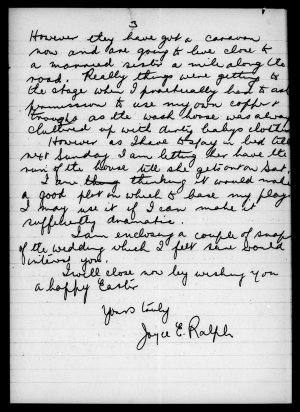 3
However they have got a caravan
now and are going to live close to
a married sister a mile along the
road. Really things were getting to
the stage when I practically had to ask
permission to use my own copper &
troughs as the wash house was always
cluttered up with dirty babys clothes
However as I have to stay in bed till
next Sunday I am letting her have the
run of the house till she gets out on Sat.
I am thinking it would make
a good plot on which to base my play
I may use it if I can make it
sufficiently dramatic.
I am enclosing a couple of snaps
of the wedding which I felt sure would
interest you.
I will close now by wishing you
a happy Easter
Yours truly
Joyce E. Ralph